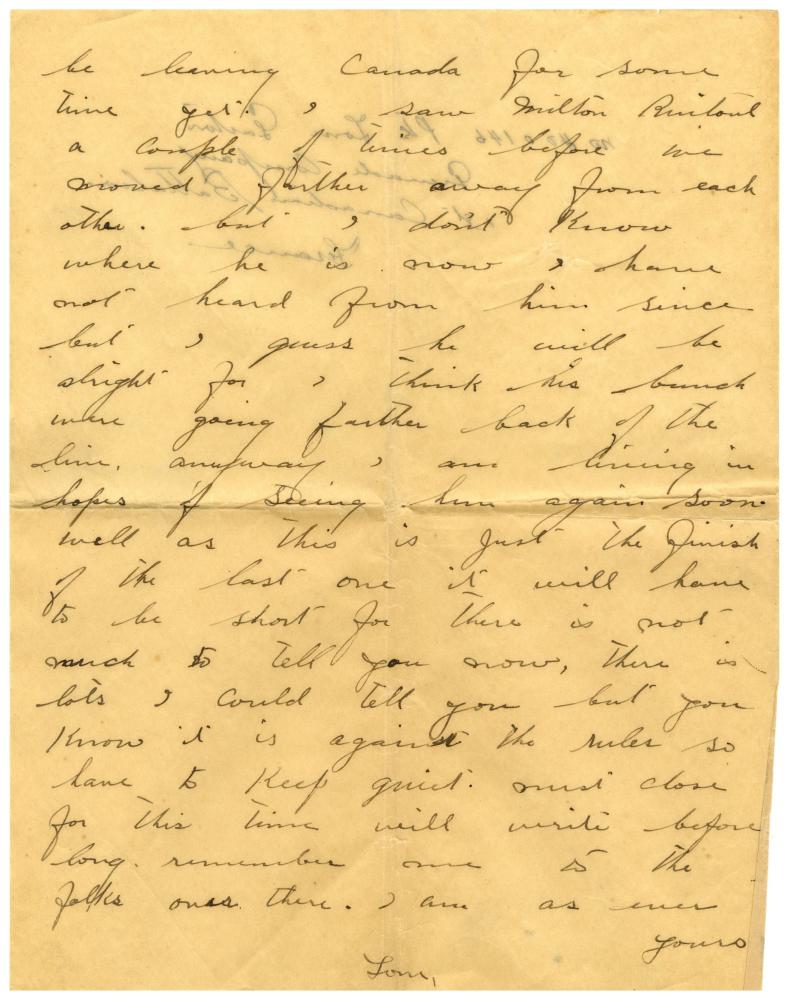 be leaving Canada for some
time yet. I saw Milton
a couple of times before we
moved further away from each
other. but I don't Know
where he is now I have
not heard from him since
but I guess he will be
alright for I think his bunch
were going farther back of the
line. anyway I am living in
hopes of seeing him again soon.
well as this is just the finish
of the last one it will have
to be short for there is not
much to tell you now, there is
lots I could tell you but you
Know it is against the rules so
have to Keep quiet. must close
for this time will write before
long. remember me to the
folks over there. I am as ever
yours
Tom,